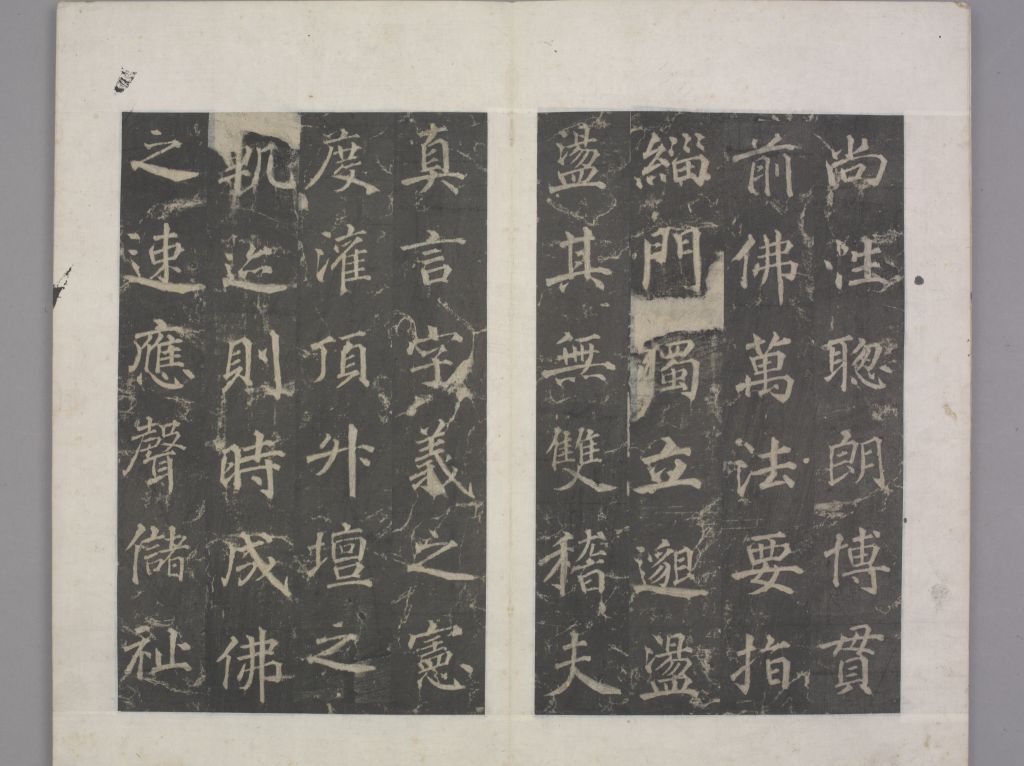 尚性聦朗博貫
前佛萬法要指
緇門獨立邈盪
盪其無雙稽夫
真言字義之憲
度灌頂升壇之
軌迹則時成佛
之速應聲儲祉